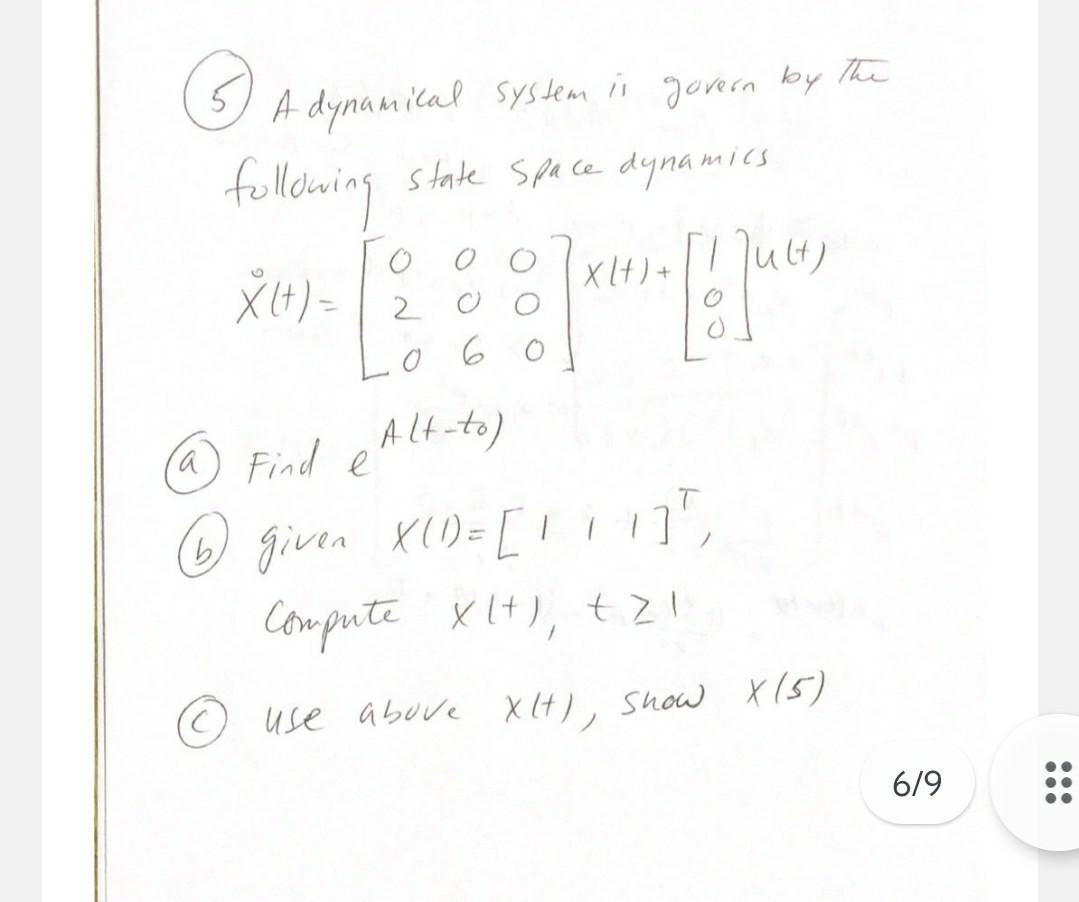 5 A dynamical system is govern by the
following state space dynamics
ẋ(t) = [0 0 0; 2 0 0; 0 6 0] x(t) + [1; 0; 0] u(t)
a Find e^A(t-to)
b given x(1) = [1 1 1]^T,
Compute x(t), t ≥ 1
c use above x(t), show x(5)
6/9